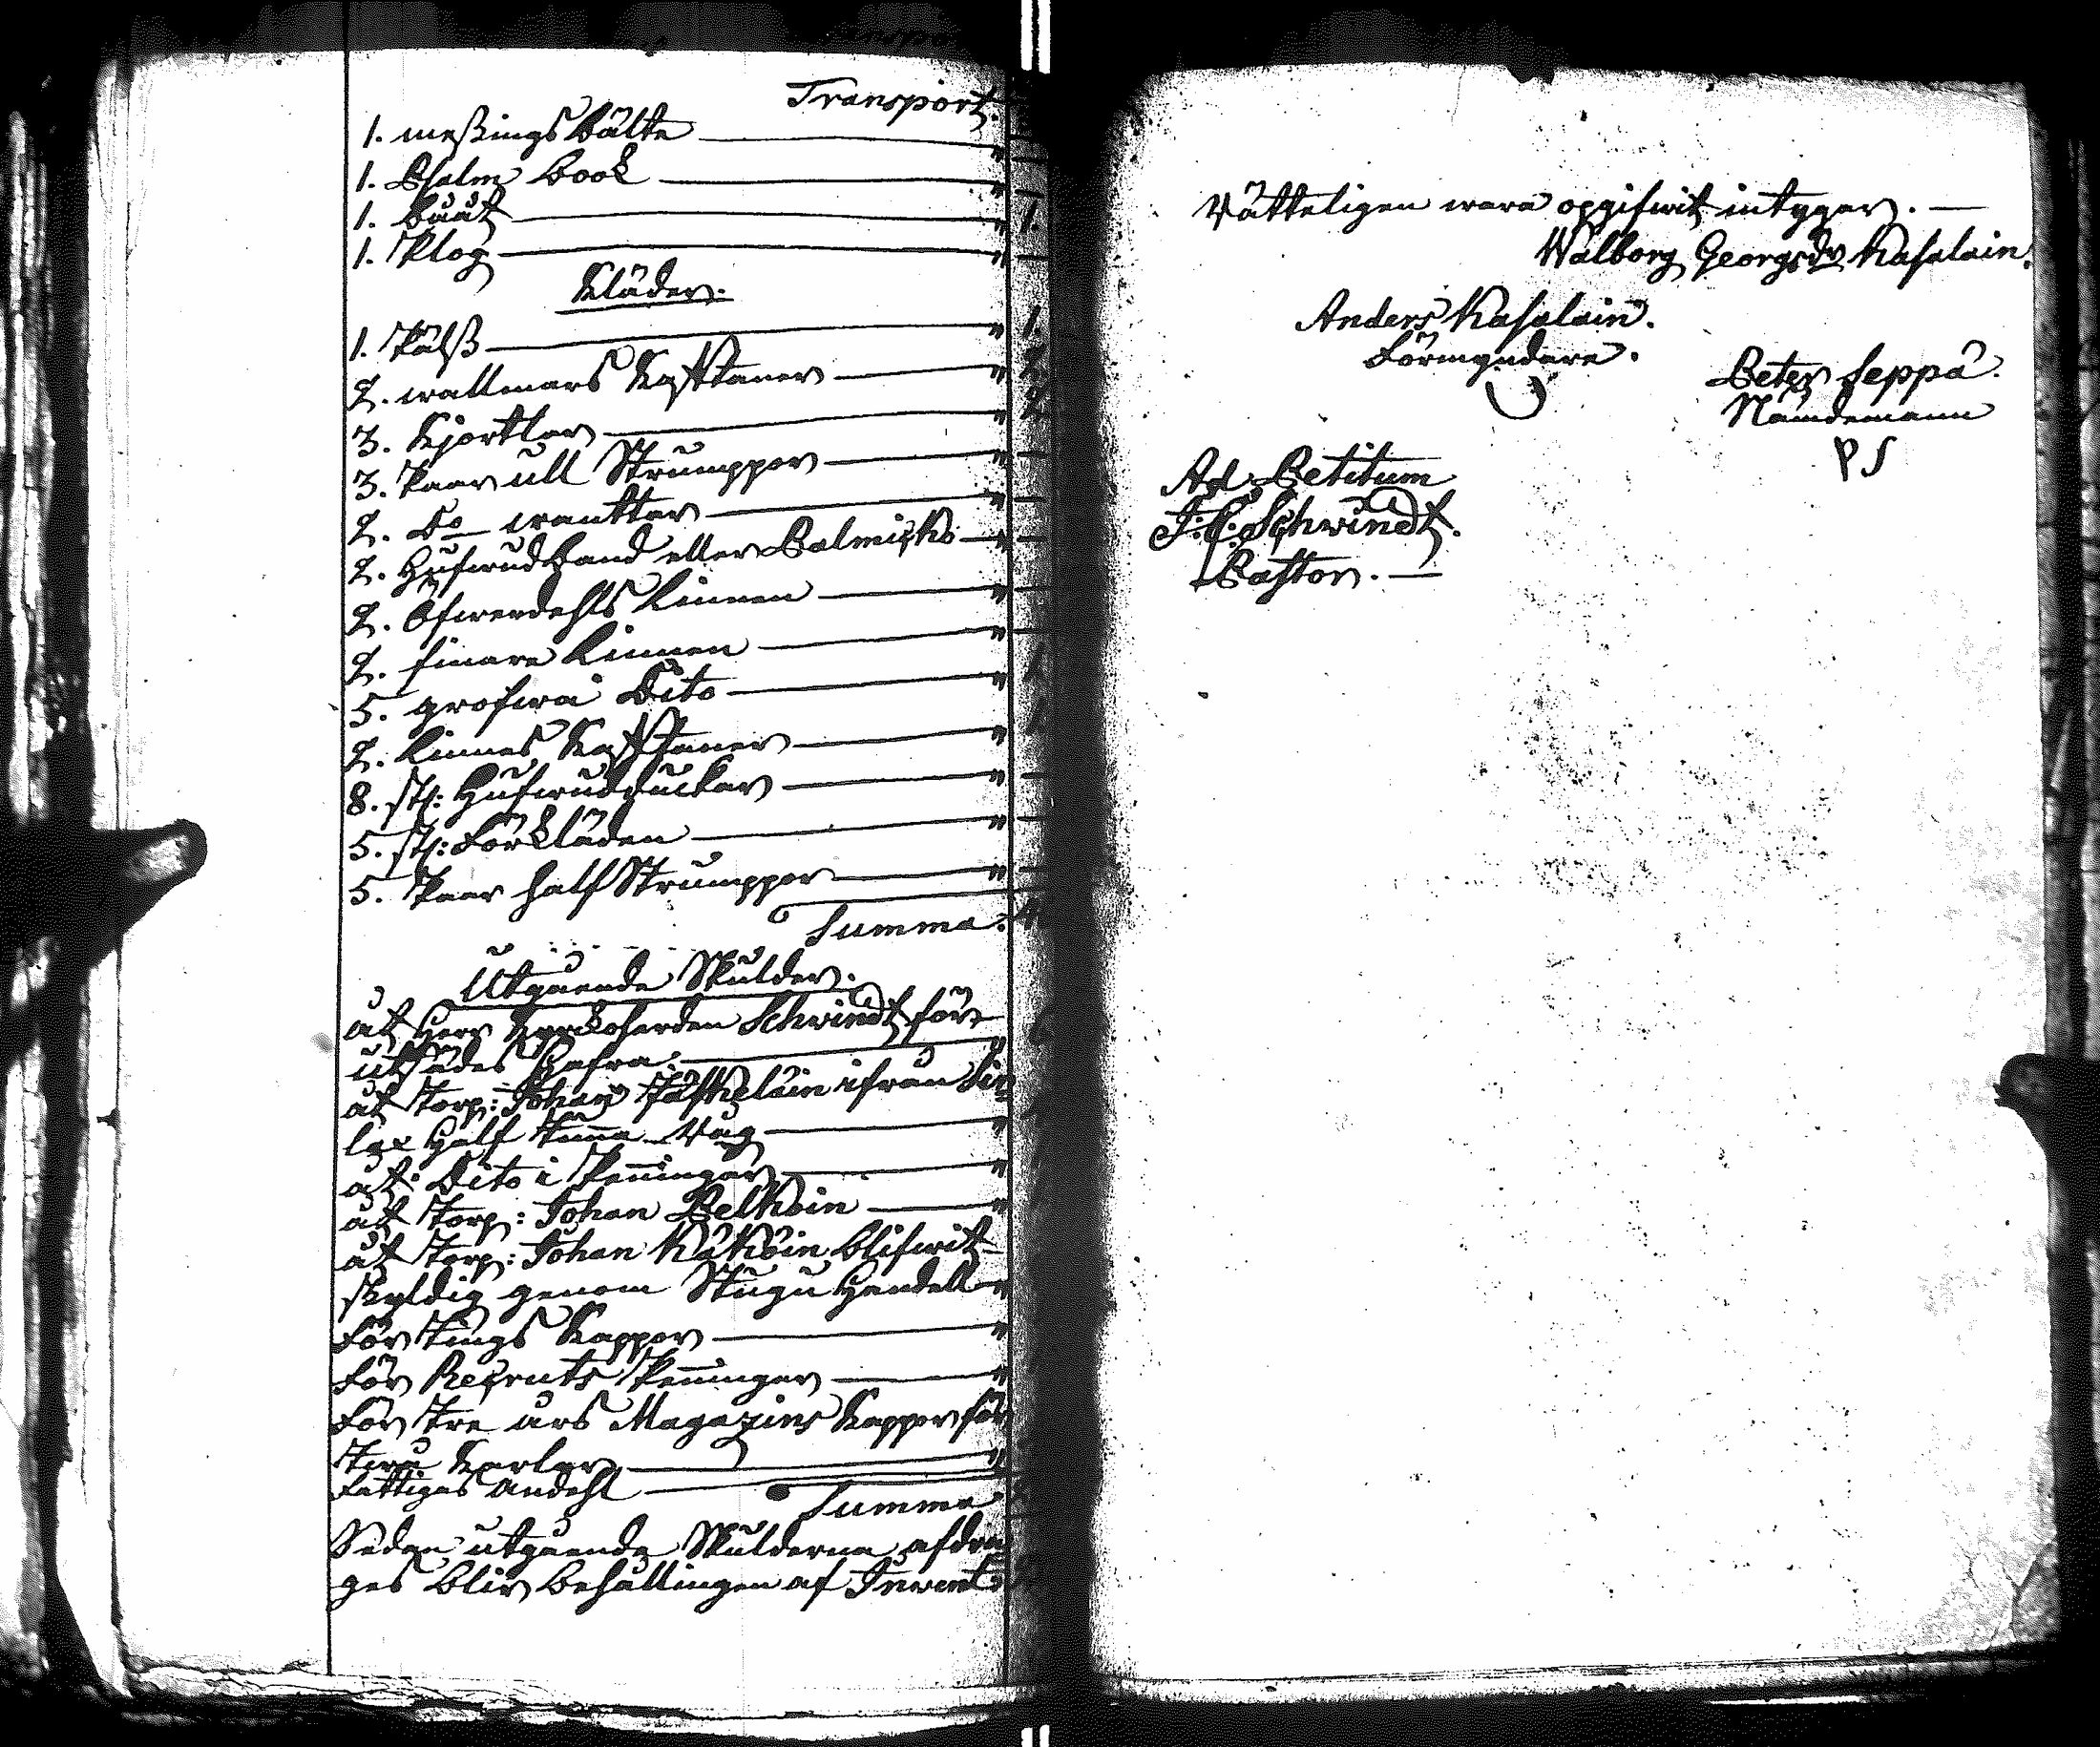 Transport.
1. meßings bälte
1. Psalm book
1. bååt
1. Plog
Kläder.
1. Päls
2. wallmars Kafftaner
3. Kjortlar
3. Paar ull Strumppor
2. Do wanttar
2. Hufwudband eller Palmikko
2. Öfwerdehls Linnen
2. finare Linnen
5. grofwa Dito
2. Linnes Kafftaner
8. st: Hufwudduckar
5. st: Förkläden
5. Paar half Strumppor
Summa.
Utgående Skulder.
åt Herr Kyrckoherden Schwindt för
utsädes Hafra
åt Torp: Johan ifrån
Half Tunna Råg
åt Dito i Penningar
åt Torp: Johan Pelkoin
åt Torp: Johan Käköin blifwit
skyldig genom Stugu Handell
För Tings Kappor
För Recruts Penningar
För Tre års Magazins Kappor för
Twå Karlar
Fattiges Andehl
Summa
Sedan utgående Skulderna afdra
ges blir behållingen af Invent:
Rätteligen wara opgifwit intygar.
Walborg Georgsdr Kasalain.
Anders Kasalain.
Förmyndare.
Peter Seppä.
Nämdemann
PS
Ad Petitum
J: C: Schwindt.
Pastor.